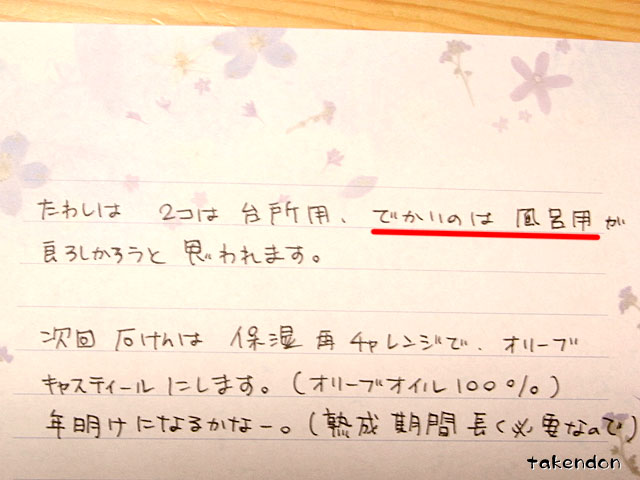 たわしは 2コは 台所用、でかいのは 風呂用が
良ろしかろうと 思われます。
次回 石けんは 保湿 再チャレンジで、オリーブ
キャスティールにします。(オリーブオイル100%)
年明けになるかなー。(熟成期間長く必要なので)
takendon